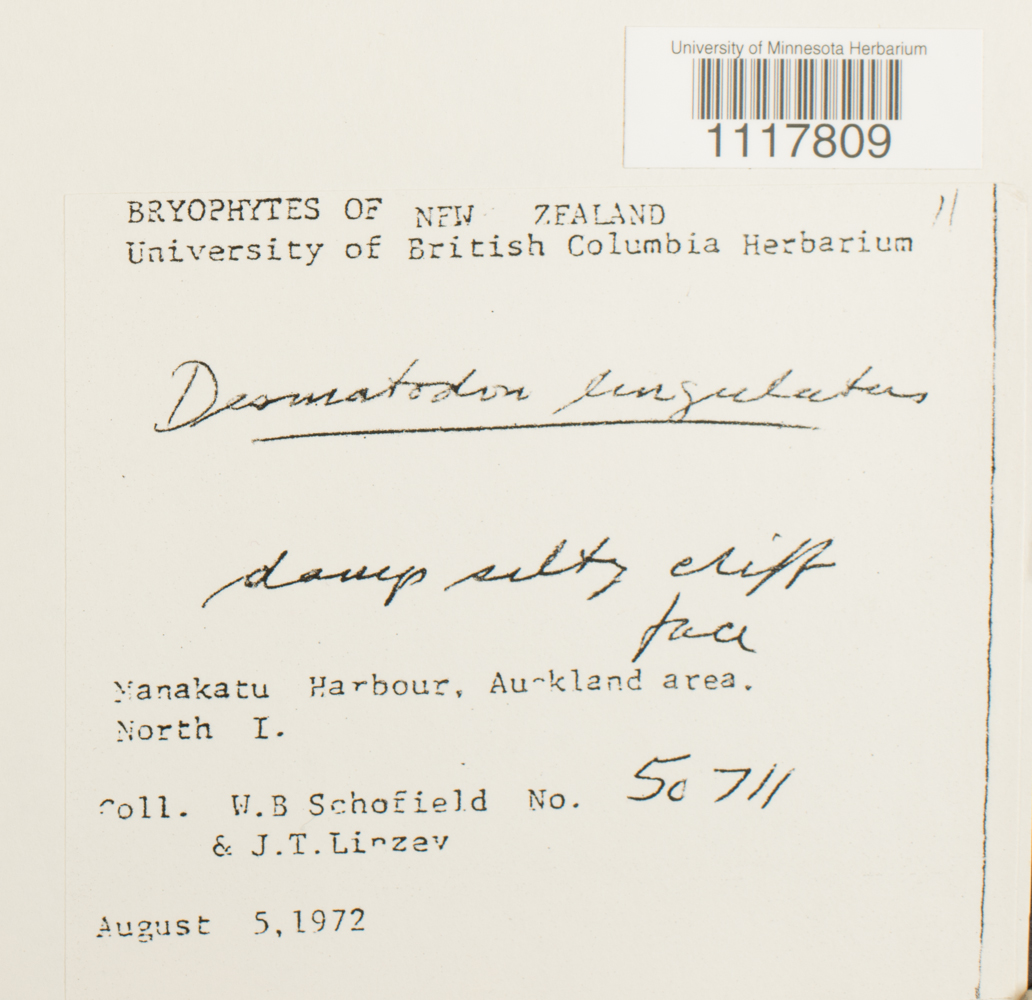 University of Minnesota Herbarium
1117809
BRYOPHYTES OF NEW ZEALAND 11
University of British Columbia Herbarium
Desmatodon lingulatus
damp silty cliff
face
Manakatu Harbour, Auckland area.
North I.
Coll. W.B Schofield No. 50711
& J.T.Linzey
August 5,1972